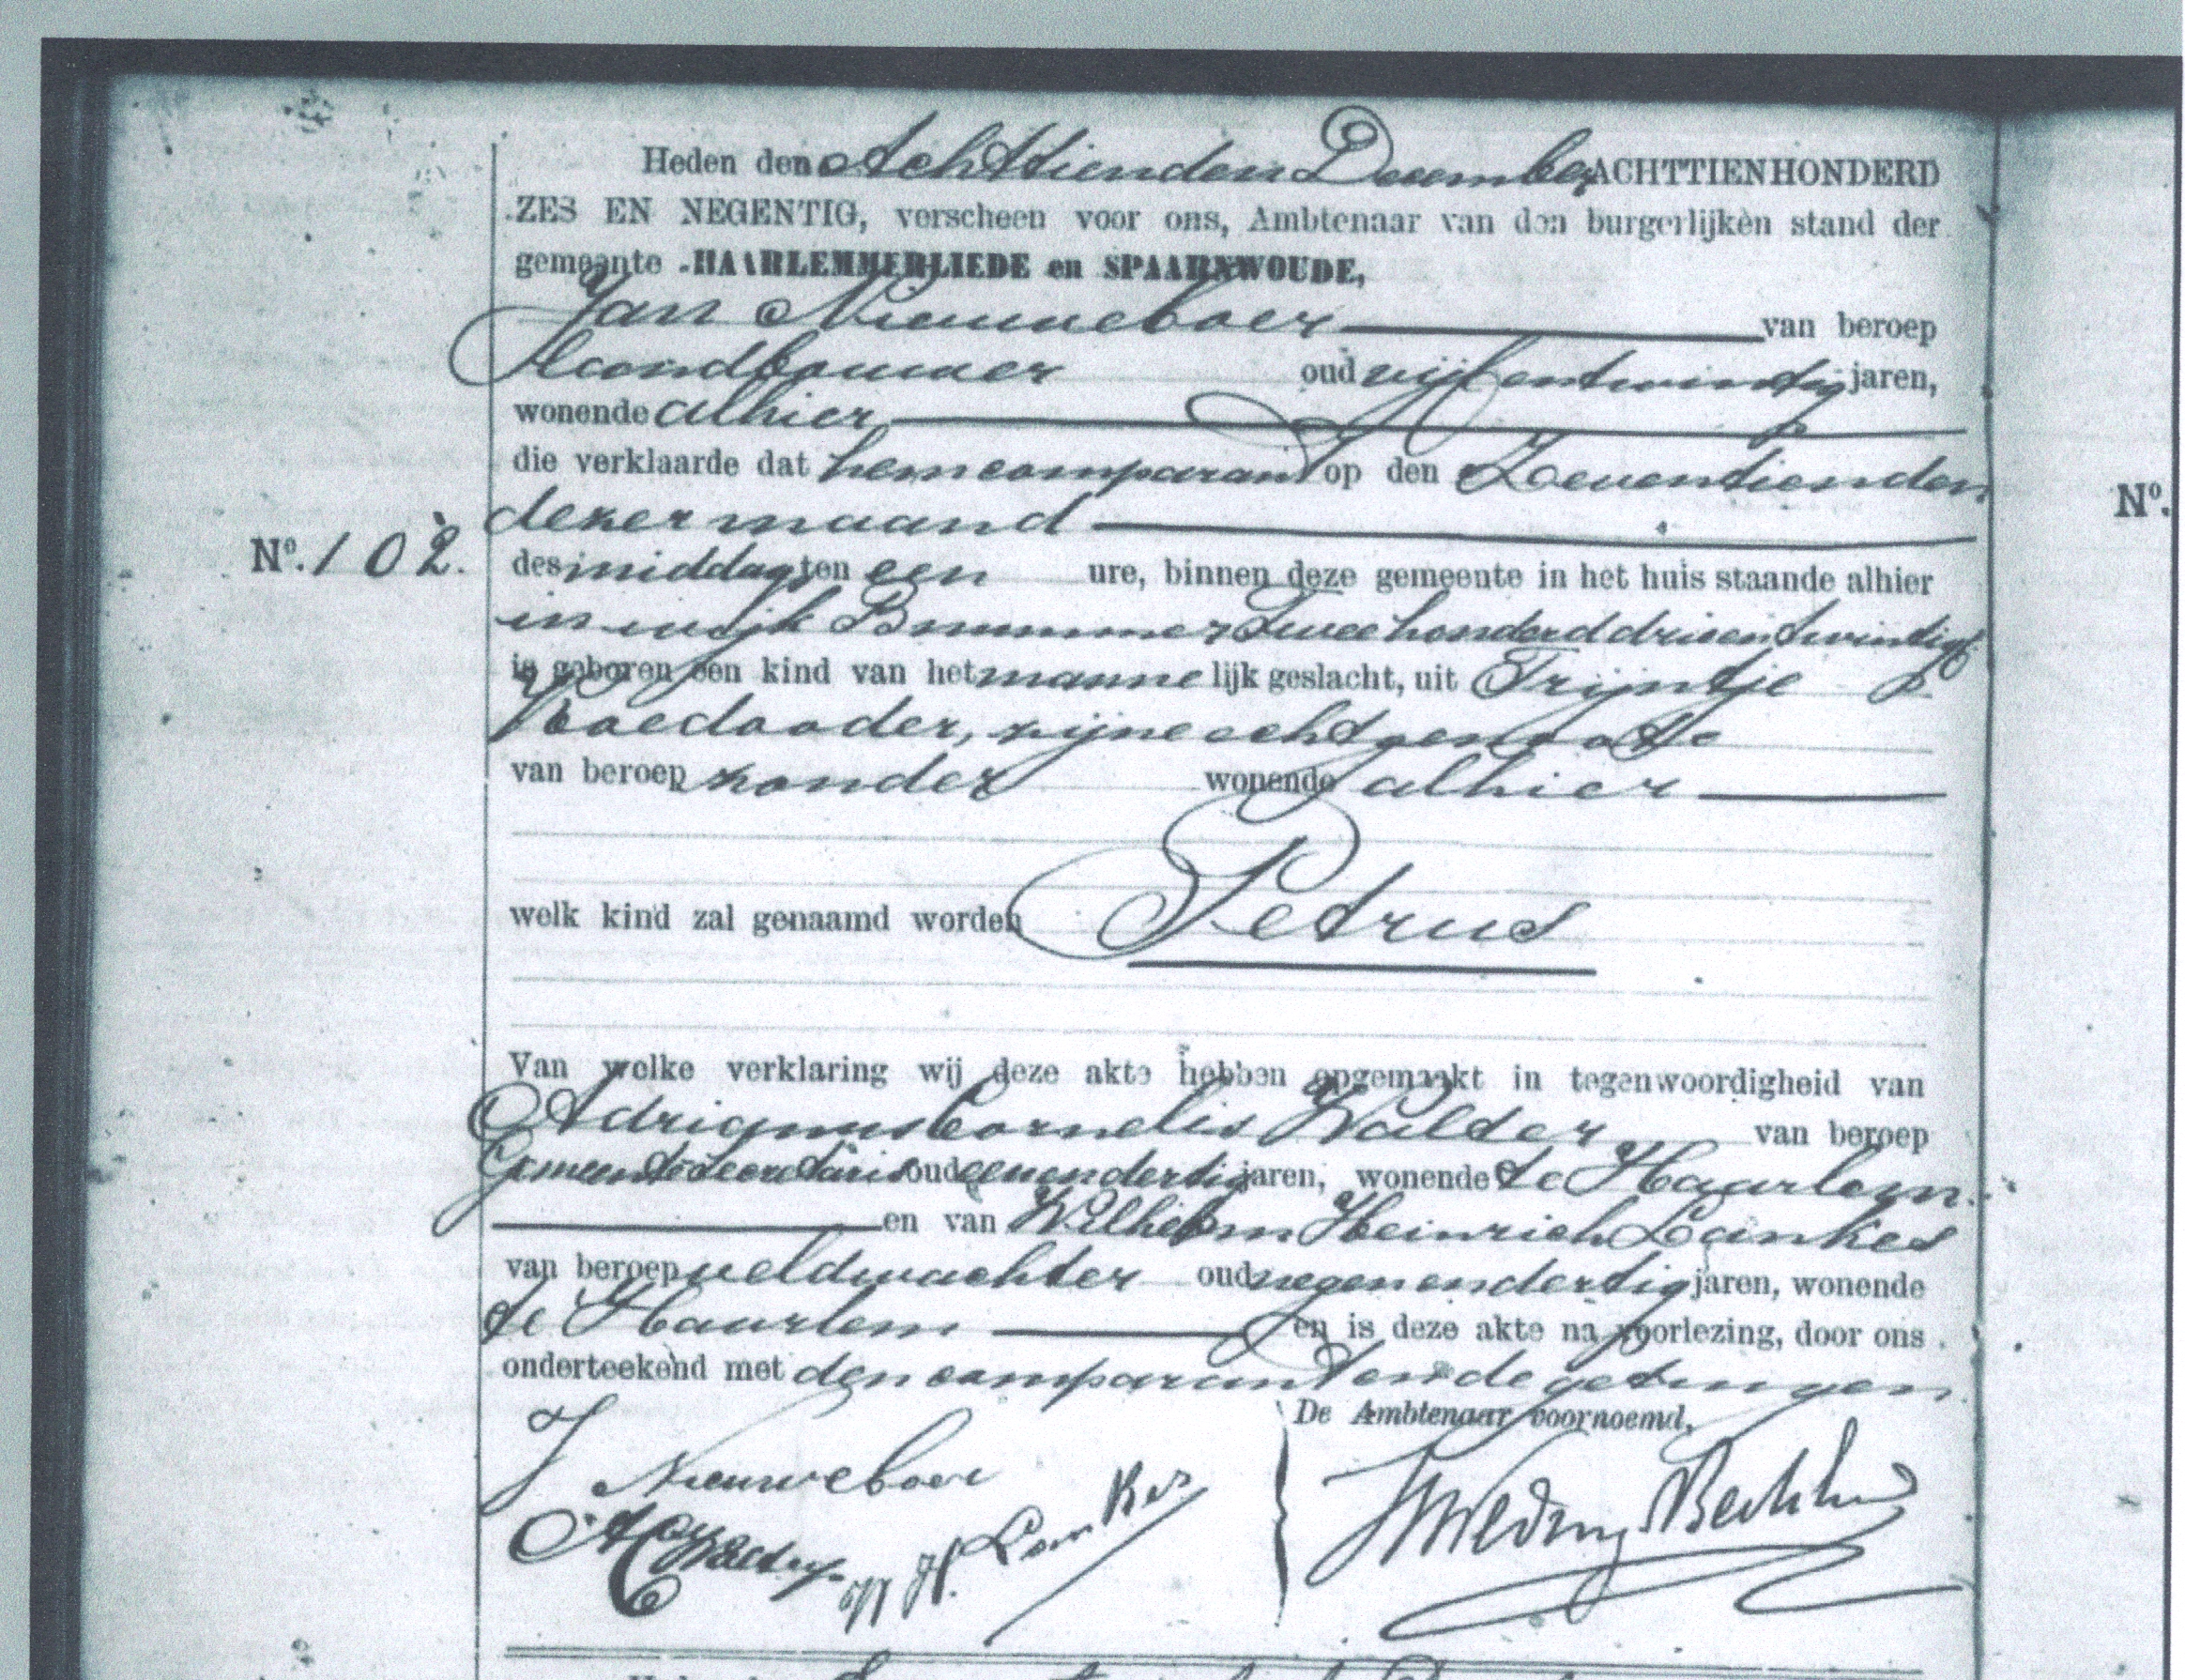 Heden den Achttienden December ACHTTIENHONDERD
ZES EN NEGENTIG, verscheen voor ons, Ambtenaar van den burgerlijken stand der
gemeente HAARLEMMERLIEDE en SPAARNWOUDE,
Jan Nieuweboer van beroep
Landbouwer oud vijfentwintig jaren,
wonende alhier
die verklaarde dat hem comparant op den Zeventienden
dezer maand
Nº. 102. des middags ten een ure, binnen deze gemeente in het huis staande alhier
Nº.
in wijk B nummer Tweehonderd drieentwintig
is geboren een kind van het manne lijk geslacht, uit Trijntje
Roedooder, zijne echtgenoote
van beroep zonder wonende alhier
welk kind zal genaamd worden Petrus
Van welke verklaring wij deze akte hebben opgemaakt in tegenwoordigheid van
Adrianus Cornelis Walder van beroep
Gemeente Secretaris oud eenendertig jaren, wonende te Haarlem
en van Wilhelm Heinrich Lankes
van beroep veldwachter oud negenendertig jaren, wonende
te Haarlem en is deze akte na voorlezing, door ons
onderteekend met den comparant en de getuigen
De Ambtenaar voornoemd,
J Nieuweboer
W H. Lankes